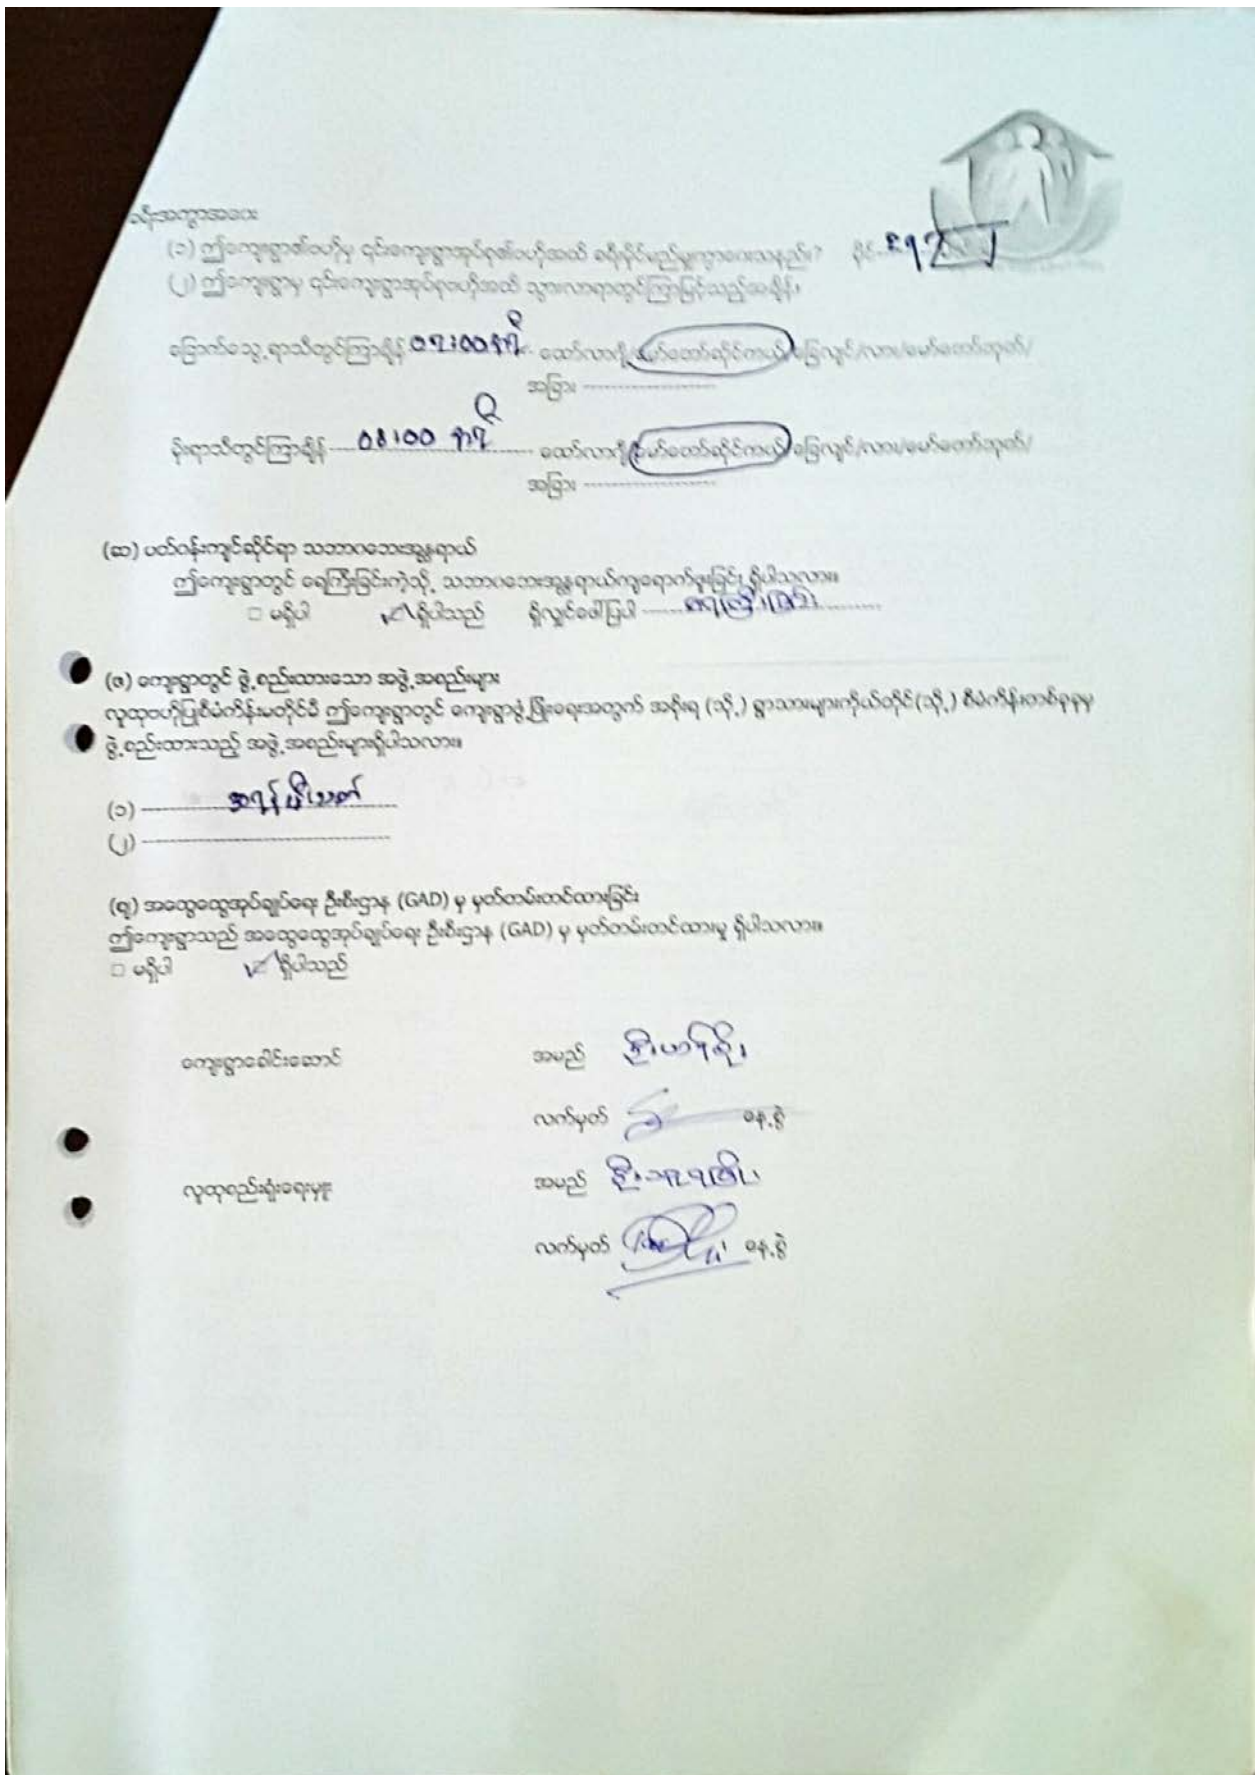 ခရီးအကွာအဝေး
(၁) ဤကျေးရွာ၏ဗဟိုမှ ၎င်းကျေးရွာအုပ်စု၏ဗဟိုအထိ ခရီးမိုင်မည်မျှကွာဝေးသနည်း? မိုင်
(၂) ဤကျေးရွာမှ ၎င်းကျေးရွာအုပ်စုဗဟိုအထိ သွားလာရာတွင်ကြာမြင့်သည့်အချိန်။
ခြောက်သွေ့ရာသီတွင်ကြာချိန် ၀၇:၀၀ နာရီ ထော်လာဂျီ/မော်တော်ဆိုင်ကယ်/ခြေလျင်/လား/မော်တော်ဘုတ်/
အခြား --------------------
မိုးရာသီတွင်ကြာချိန် ---- ၀၈:၀၀ နာရီ ---- ထော်လာဂျီ/မော်တော်ဆိုင်ကယ်/ခြေလျင်/လား/မော်တော်ဘုတ်/
အခြား --------------------
(ဆ) ပတ်ဝန်းကျင်ဆိုင်ရာ သဘာဝဘေးအန္တရာယ်
ဤကျေးရွာတွင် ရေကြီးခြင်းကဲ့သို့ သဘာဝဘေးအန္တရာယ်ကျရောက်ဖူးခြင်း ရှိပါသလား။
□ မရှိပါ ✓ ရှိပါသည် ရှိလျှင်ဖေါ်ပြပါ ------ ရေကြီးခြင်း ------
(ဇ) ကျေးရွာတွင် ဖွဲ့စည်းထားသော အဖွဲ့အစည်းများ
လူထုဗဟိုပြုစီမံကိန်းမတိုင်မီ ဤကျေးရွာတွင် ကျေးရွာဖွံ့ဖြိုးရေးအတွက် အစိုးရ (သို့) ရွာသားများကိုယ်တိုင်(သို့) စီမံကိန်းတစ်ခုခုမှ
ဖွဲ့စည်းထားသည့် အဖွဲ့အစည်းများရှိပါသလား။
(၁) ---------- အရန်မီးသတ် ------
(၂) ------------------------------
(ဈ) အထွေထွေအုပ်ချုပ်ရေး ဦးစီးဌာန (GAD) မှ မှတ်တမ်းတင်ထားခြင်း
ဤကျေးရွာသည် အထွေထွေအုပ်ချုပ်ရေး ဦးစီးဌာန (GAD) မှ မှတ်တမ်းတင်ထားမှု ရှိပါသလား။
□ မရှိပါ ✓ ရှိပါသည်
ကျေးရွာခေါင်းဆောင် အမည်
လက်မှတ် နေ့စွဲ
လူထုစည်းရုံးရေးမှူး အမည်
လက်မှတ် နေ့စွဲ